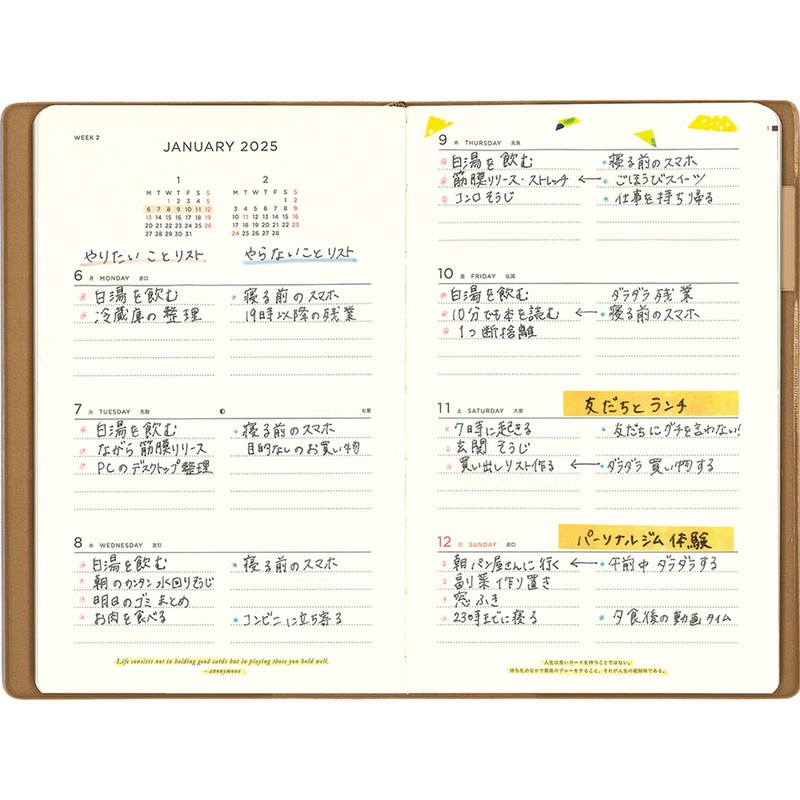 WEEK 2
JANUARY 2025
1
M T W T F S S
1 2 3 4 5
6 7 8 9 10 11 12
13 14 15 16 17 18 19
20 21 22 23 24 25 26
27 28 29 30 31
2
M T W T F S S
1 2
3 4 5 6 7 8 9
10 11 12 13 14 15 16
17 18 19 20 21 22 23
24 25 26 27 28
やりたいことリスト
やらないことリスト
6 月 MONDAY 赤口
白湯を飲む
寝る前のスマホ
冷蔵庫の整理
19時以降の残業
7 火 TUESDAY 先勝
七草
白湯を飲む
寝る前のスマホ
ながら筋膜リリース
目的なしのお買い物
PCのデスクトップ整理
8 水 WEDNESDAY 友引
白湯を飲む
寝る前のスマホ
朝のカンタン水回りそうじ
明日のゴミまとめ
お肉を食べる
コンビニに立ち寄る
Life consists not in holding good cards but in playing those you hold well.
- anonymous
1
9 木 THURSDAY 先負
白湯を飲む
寝る前のスマホ
筋膜リリース・ストレッチ ←
ごほうびスイーツ
コンロそうじ
仕事を持ち帰る
10 金 FRIDAY 仏滅
白湯を飲む
ダラダラ残業
10分でも本を読む ←
寝る前のスマホ
1つ断捨離
11 土 SATURDAY 大安
友だちとランチ
7時に起きる
友だちにグチを言わない!
玄関そうじ
買い出しリスト作る ←
ダラダラ買い物する
12 日 SUNDAY 赤口
パーソナルジム体験
朝パン屋さんに行く ←
午前中ダラダラする
副菜作り置き
窓ふき
23時までに寝る
夕食後の動画タイム
人生は良いカードを持つことではない。
持ち札のなかで最高のプレーをすること、それが人生の醍醐味である。